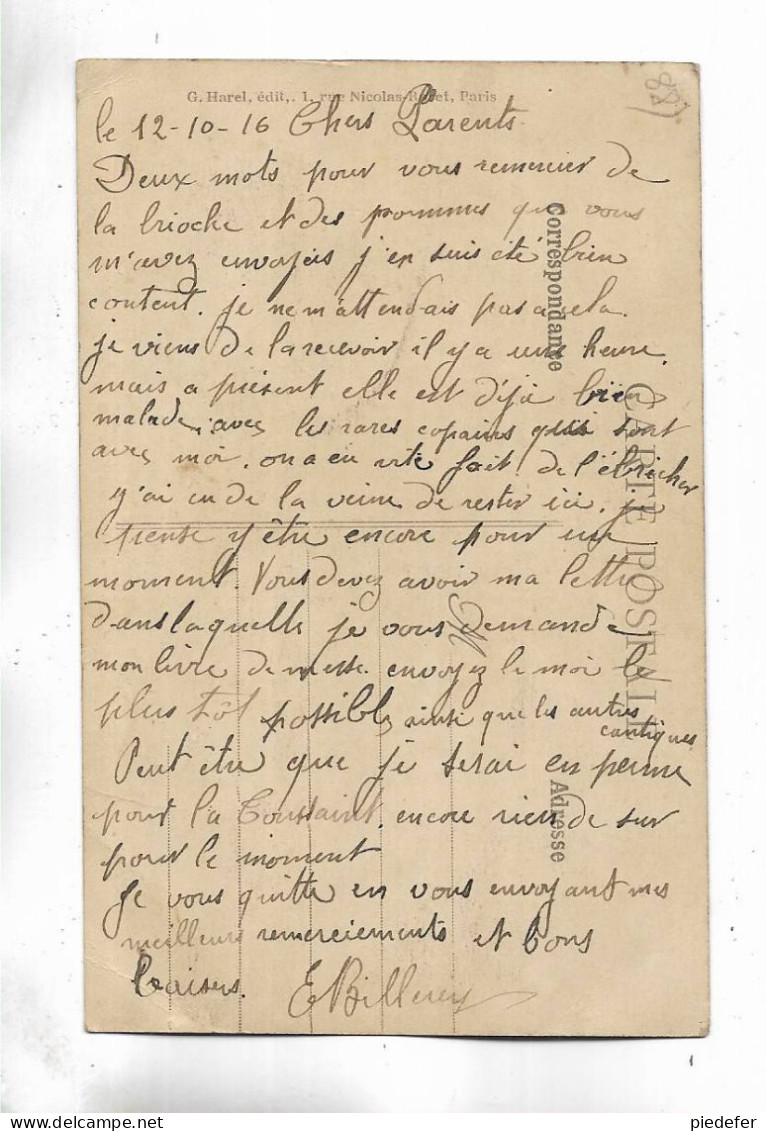 (88)
G. Harel, édit,. 1, rue Nicolas- Paris
le 12-10-16 Chers Parents
Deux mots pour vous remercier de
la brioche et des pommes que vous
m'avez envoyées j'en suis été bien
content. je ne m'attendais pas a cela.
je viens de la recevoir il y a une heure.
mais a présent elle est déjà bien
malade, avec les rares copains qui sont
avec moi, on a eu vite fait de l'ébrécher
j'ai eu de la veine de rester ici. je
pense y être encore pour un
moment. Vous devez avoir ma lettre
dans laquelle je vous demande
mon livre de messe. envoyez le moi le
plus tôt possible ainsi que les autres
cantiques
Peut être que je serai en perme
pour la Toussaint. encore rien de sur
pour le moment
Je vous quitte en vous envoyant mes
meilleurs remerciements et bons
baisers. E Billerey
Correspondance
CARTE POSTALE
M
Adresse
piedefer